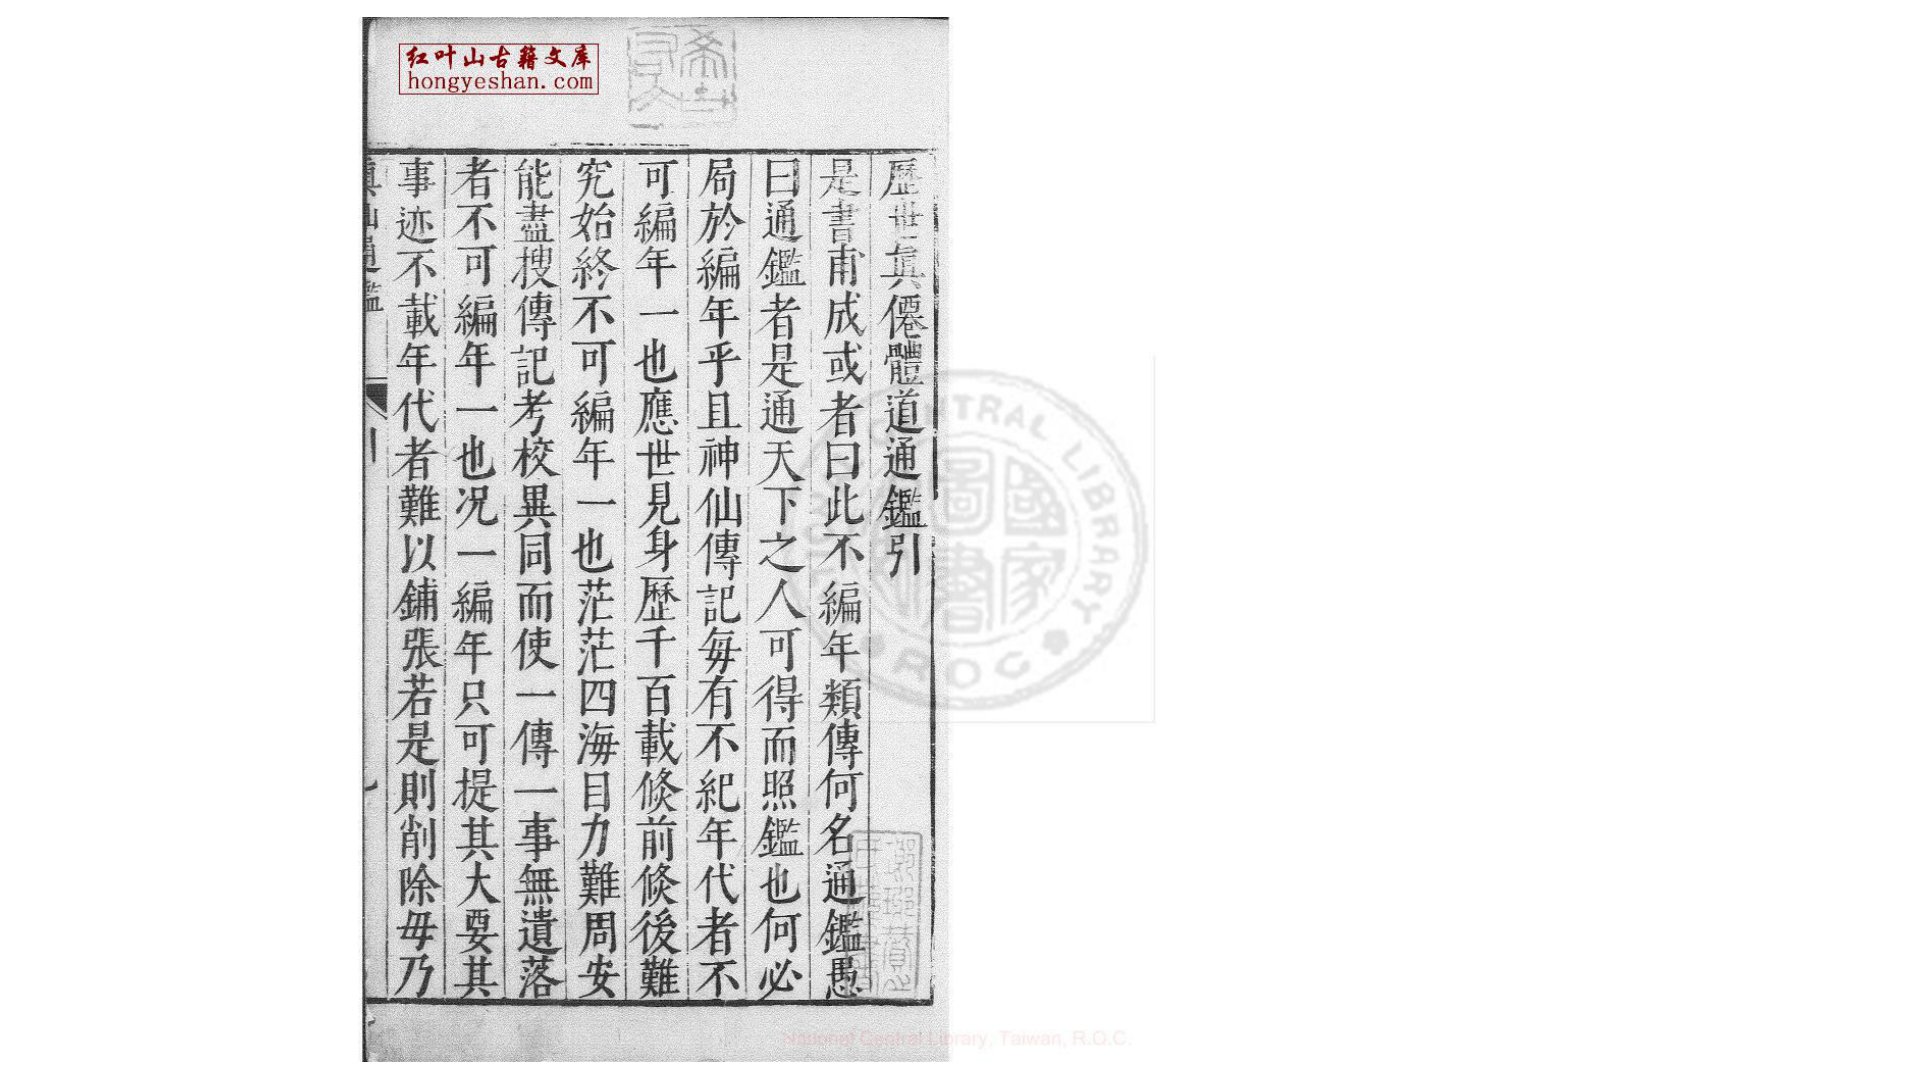 红叶山古籍文库
hongyeshan.com
歷世眞僊體道通鑑引
是書甫成或者曰此不編年類傳何名通鑑愚
曰通鑑者是通天下之人可得而照鑑也何必
局於編年乎且神仙傳記每有不紀年代者不
可編年一也應世見身歷千百載倐前倐後難
究始終不可編年一也茫茫四海目力難周安
能盡搜傳記考校異同而使一傳一事無遺落
者不可編年一也况一編年只可提其大要其
事迹不載年代者難以鋪張若是則削除毋乃
眞仙通鑑
CENTRAL LIBRARY
R.O.C.
國家圖書
National Central Library, Taiwan, R.O.C.